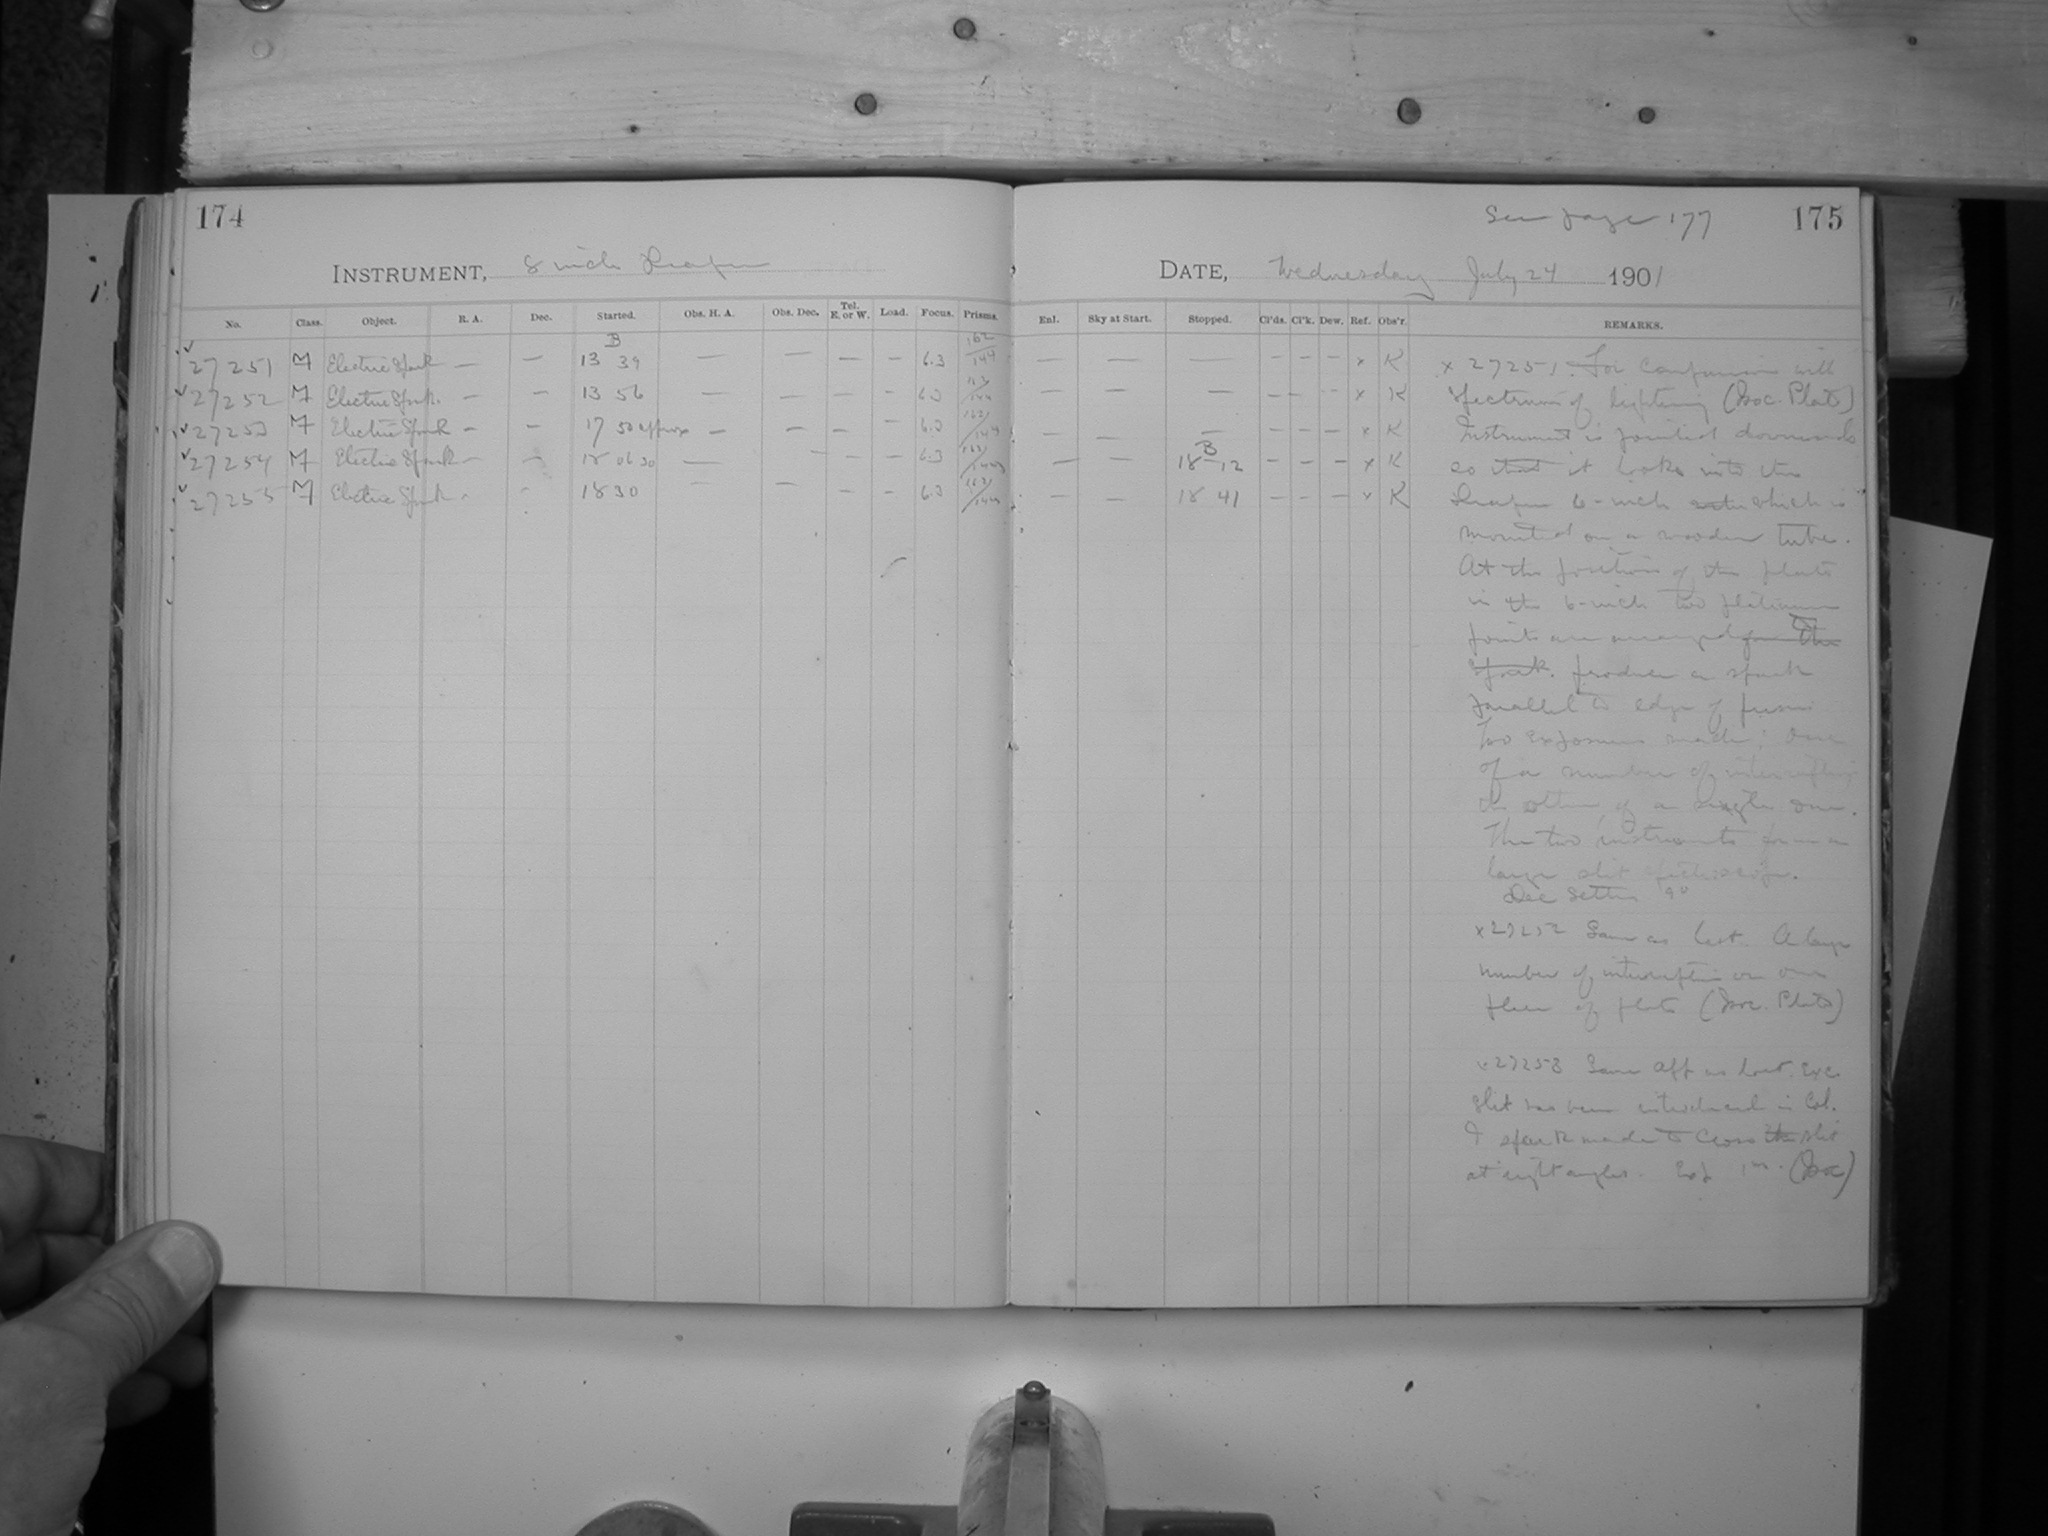 174
INSTRUMENT, 8 inch Draper
No. Class. Object. R. A. Dec. Started. Obs. H. A. Obs. Dec. Tel. E. or W. Load. Focus. Prisms.
B 162
27251 M Electric Spark — — 13 39 — — — — 6.3 144
27252 M Electric Spark — — 13 56 — — — — 6.3
27253 M Electric Spark — — 17 50 approx — — — — 6.3
27254 M Electric Spark — — 18 06 30 — — — — 6.3
27255 M Electric Spark - - 18 30 — — — — 6.3
See page 177 175
DATE, Wednesday July 24 1901
Enl. Sky at Start. Stopped. Cl'ds. Cl'k. Dew. Ref. Obs'r. REMARKS.
— — — — — — x K x 27251. For comparison with
— — — — — — x K spectrum of lightning (Isoc. Plate)
— — — — — — x K Instrument is pointed downwards
B
— — 18 12 — — — x K so that it looks into the
— — 18 41 — — — x K Draper 6-inch which is
mounted on a wooden tube.
At the position of the plate
in the 6-inch two platinum
points are arranged for the to
spark. produce a spark
parallel to edge of prism
Two exposures made; one
of a number of interruptions
the other of a single one.
The two instruments form a
large slit spectroscope.
Dec setting
x 27252 Same as last. A large
number of interruptions on one
place of plate (Isoc. Plate)
x 27253 Same App as last. Exc.
slit has been introduced in Col.
& spark made to cross the slit
at right angles. Exp 1m. (Isoc)